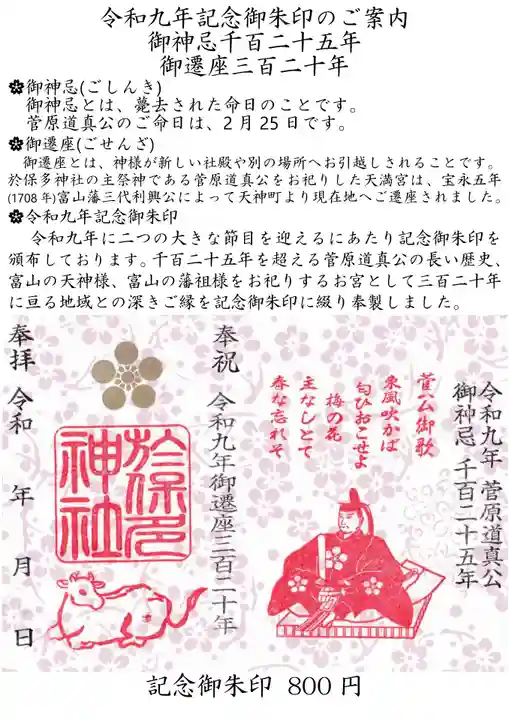 令和九年記念御朱印のご案内
御神忌千百二十五年
御遷座三百二十年
✿御神忌(ごしんき)
御神忌とは、薨去された命日のことです。
菅原道真公のご命日は、2月25日です。
✿御遷座(ごせんざ)
御遷座とは、神様が新しい社殿や別の場所へお引越しされることです。
於保多神社の主祭神である菅原道真公をお祀りした天満宮は、宝永五年
(1708年)富山藩三代利興公によって天神町より現在地へご遷座されました。
✿令和九年記念御朱印
令和九年に二つの大きな節目を迎えるにあたり記念御朱印を
頒布しております。千百二十五年を超える菅原道真公の長い歴史、
富山の天神様、富山の藩祖様をお祀りするお宮として三百二十年
に亘る地域との深きご縁を記念御朱印に綴り奉製しました。
令和九年 菅原道真公
御神忌 千百二十五年
菅公御歌
東風吹かば
匂ひおこせよ
梅の花
主なしとて
春な忘れそ
奉祝 令和九年御遷座三百二十年
於保多
神社
奉拝 令和 年 月 日
記念御朱印 800円